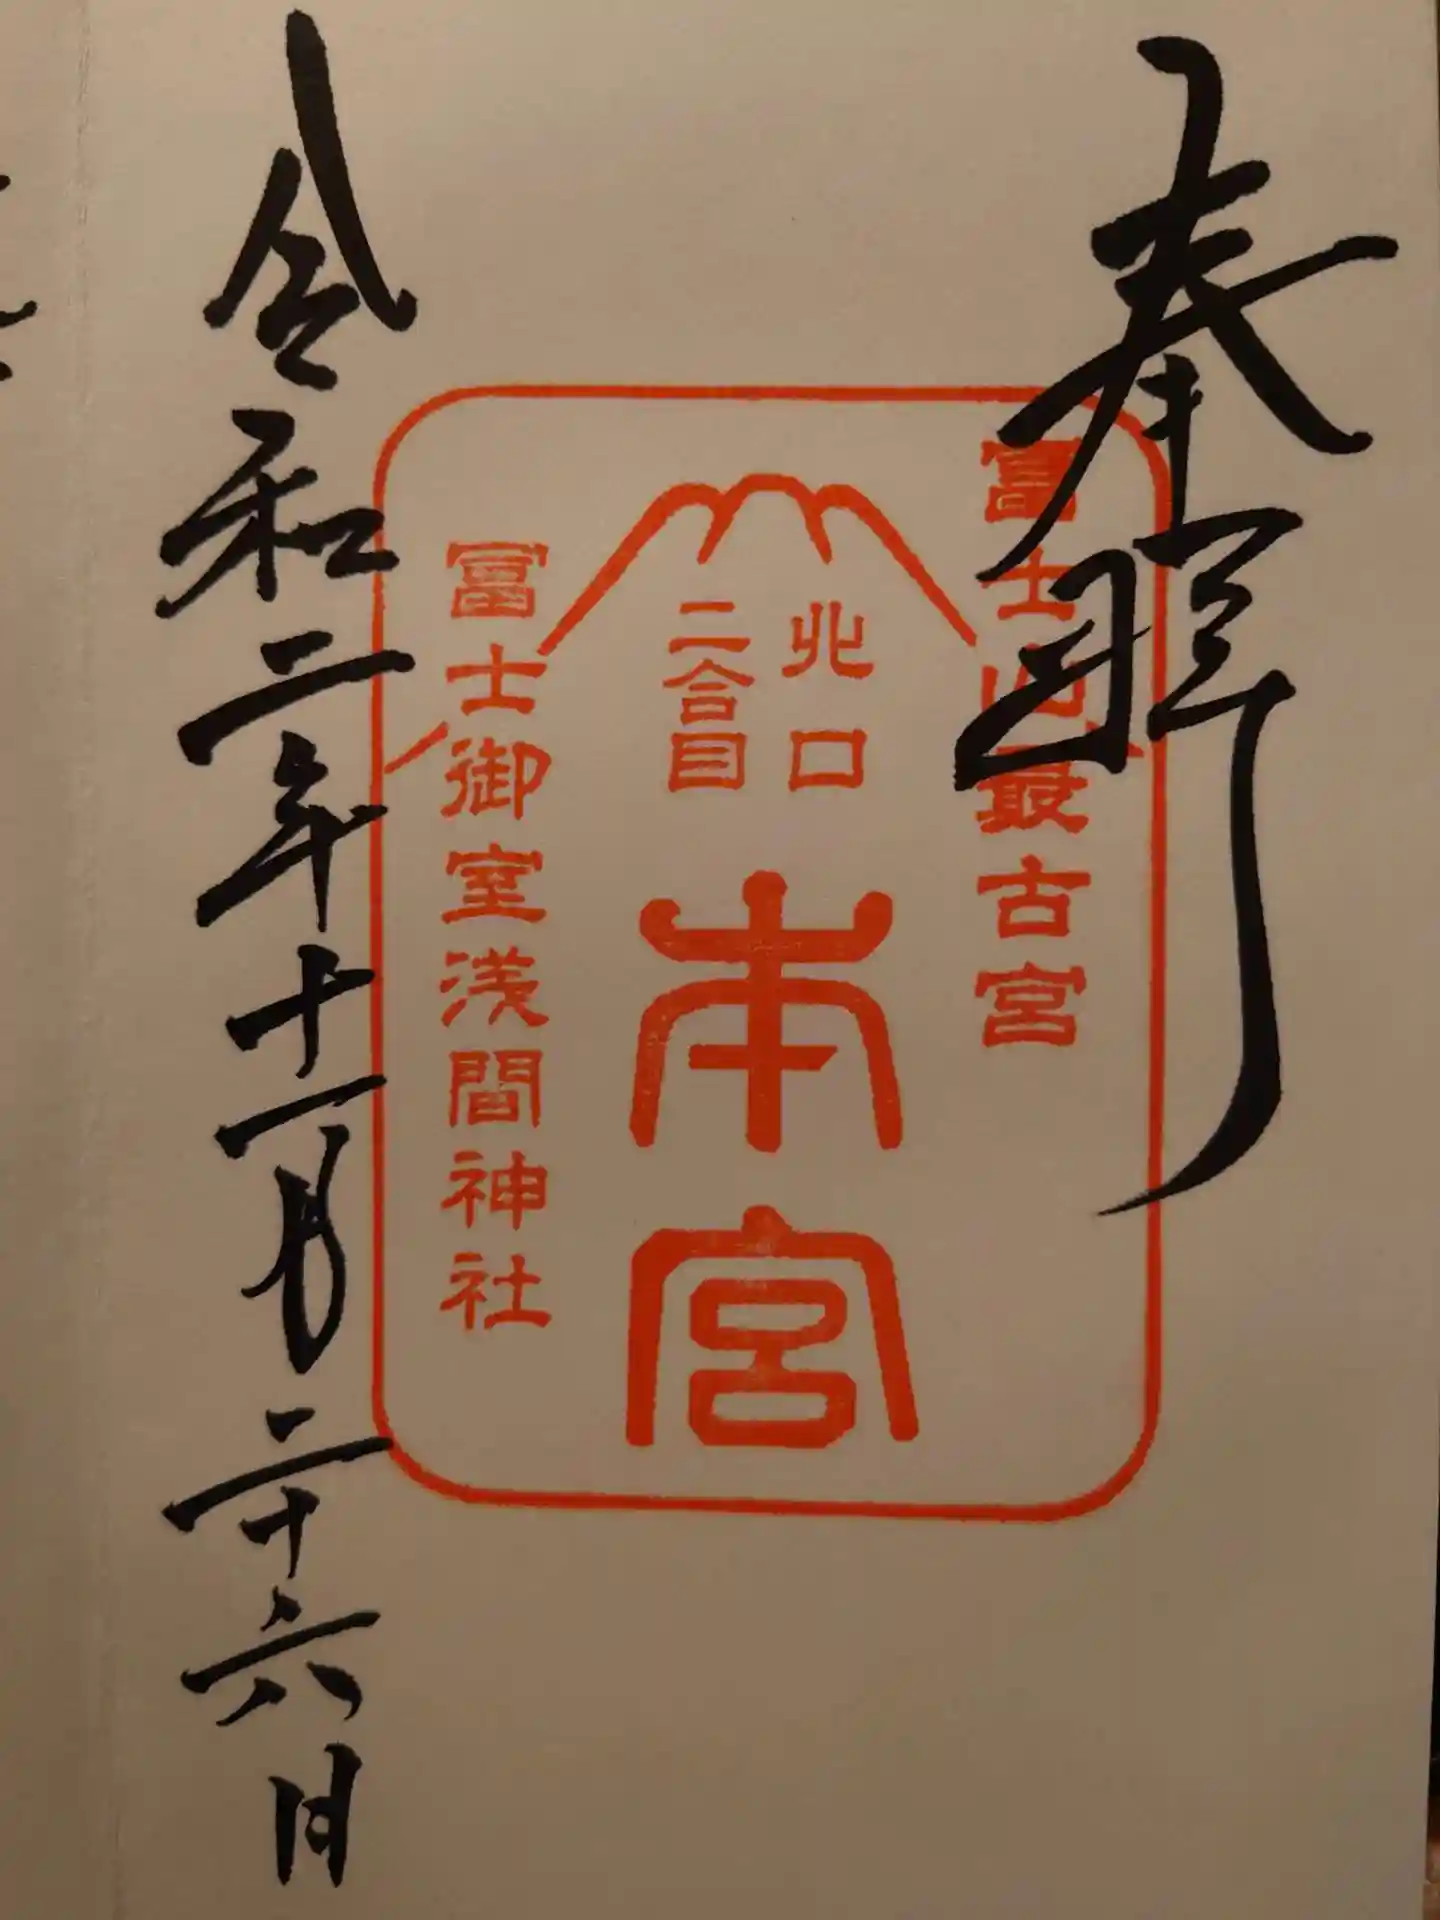 奉拝
冨士山最古宮
北口
二合目
本宮
冨士御室浅間神社
令和二年十一月二十六日